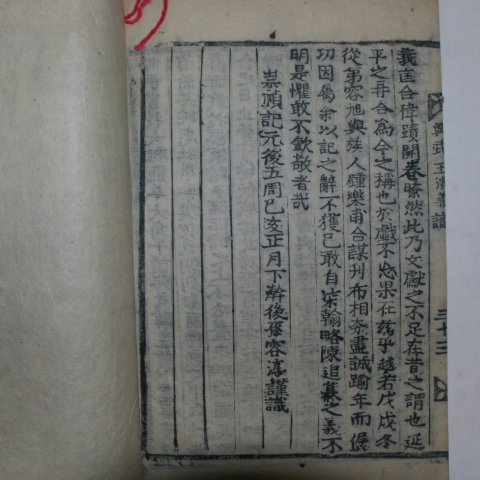 義匡合偉蹟開卷瞭然此乃文獻之不足在昔之謂也延
平之再合為今之稱也於戲不忠果在玆乎越若戊戌冬
從弟容旭與族人鍾樂甫合謀刊布相夯盡誠踰年而僝
功因屬余以記之辭不獲已敢自柒翰略陳追慕之義不
明是懼敢不欽敬者哉
崇禎記元後五周己亥正月下澣後孫容淳謹識
興武王演義譜
三十三